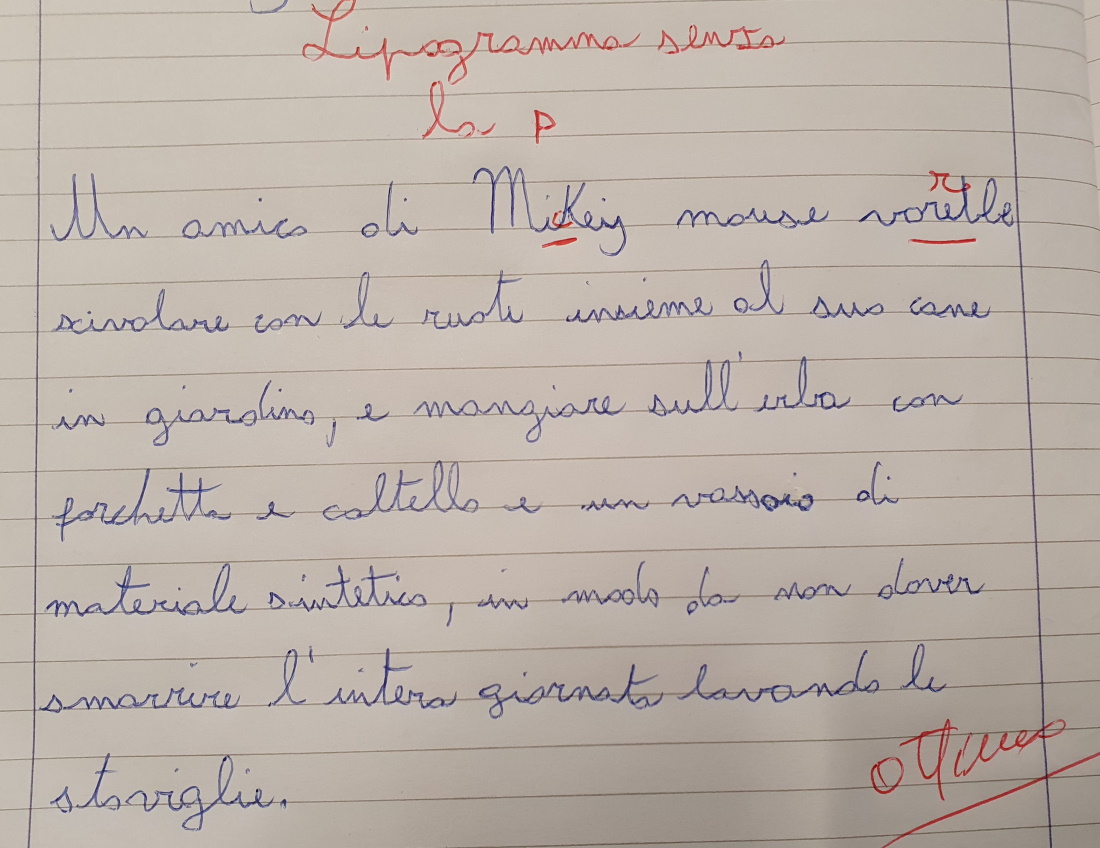 Lipogramma senza
la p
Un amico di Mickey mouse vorrebbe
scivolare con le ruote insieme al suo cane
in giardino, e mangiare sull'erba con
forchetta e coltello e un vassoio di
materiale sintetico, in modo da non dover
smarrire l'intera giornata lavando le
stoviglie.
ottimo